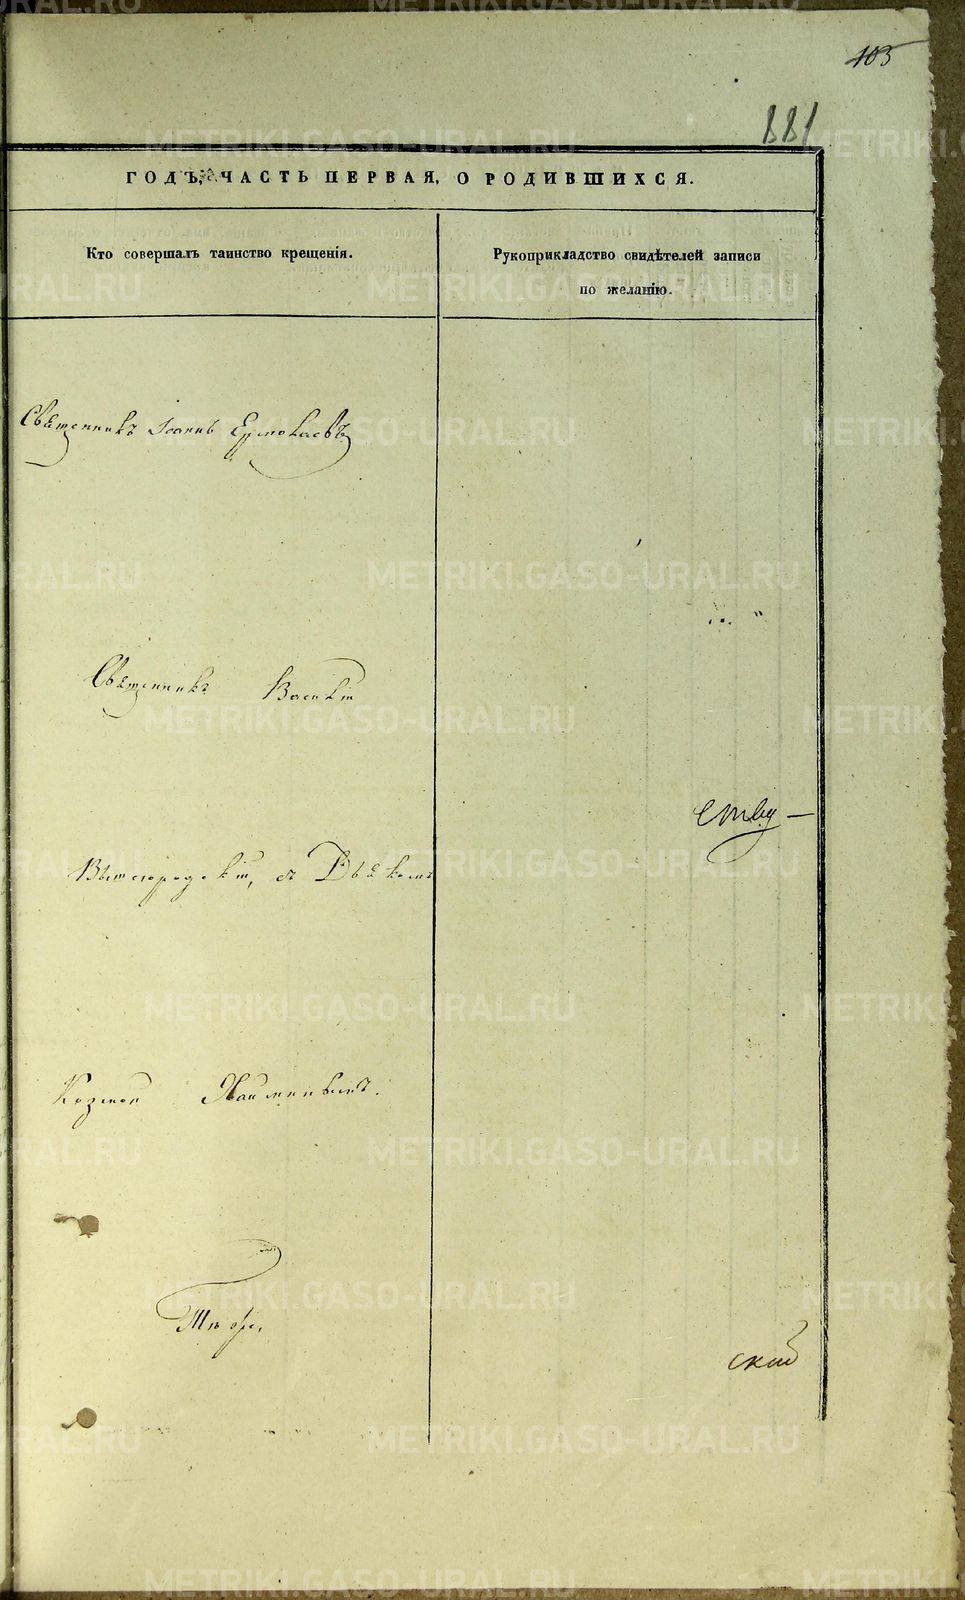 103
881
ГОДЪ, ЧАСТЬ ПЕРВАЯ, О РОДИВШИХСЯ.
Кто совершалъ таинство крещенія.
Рукоприкладство свидѣтелей записи
по желанію.
Священникъ Іоаннъ Ермолаевъ
Священникъ Василій
Вышегородскій, съ Дьякомъ
Козмой
Тѣже.
ской
METRIKI.GASO-URAL.RU